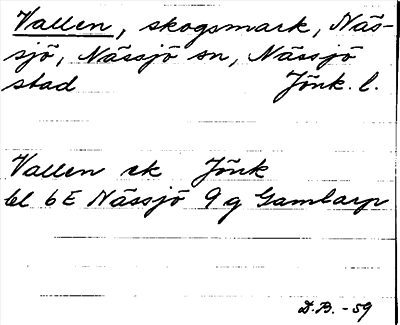 Vallen, skogsmark, Näs-
sjö, Nässjö sn, Nässjö
stad Jönk. l.
Vallen ek Jönk
bl 6E Nässjö 9g Gamlarp
D.B. -59